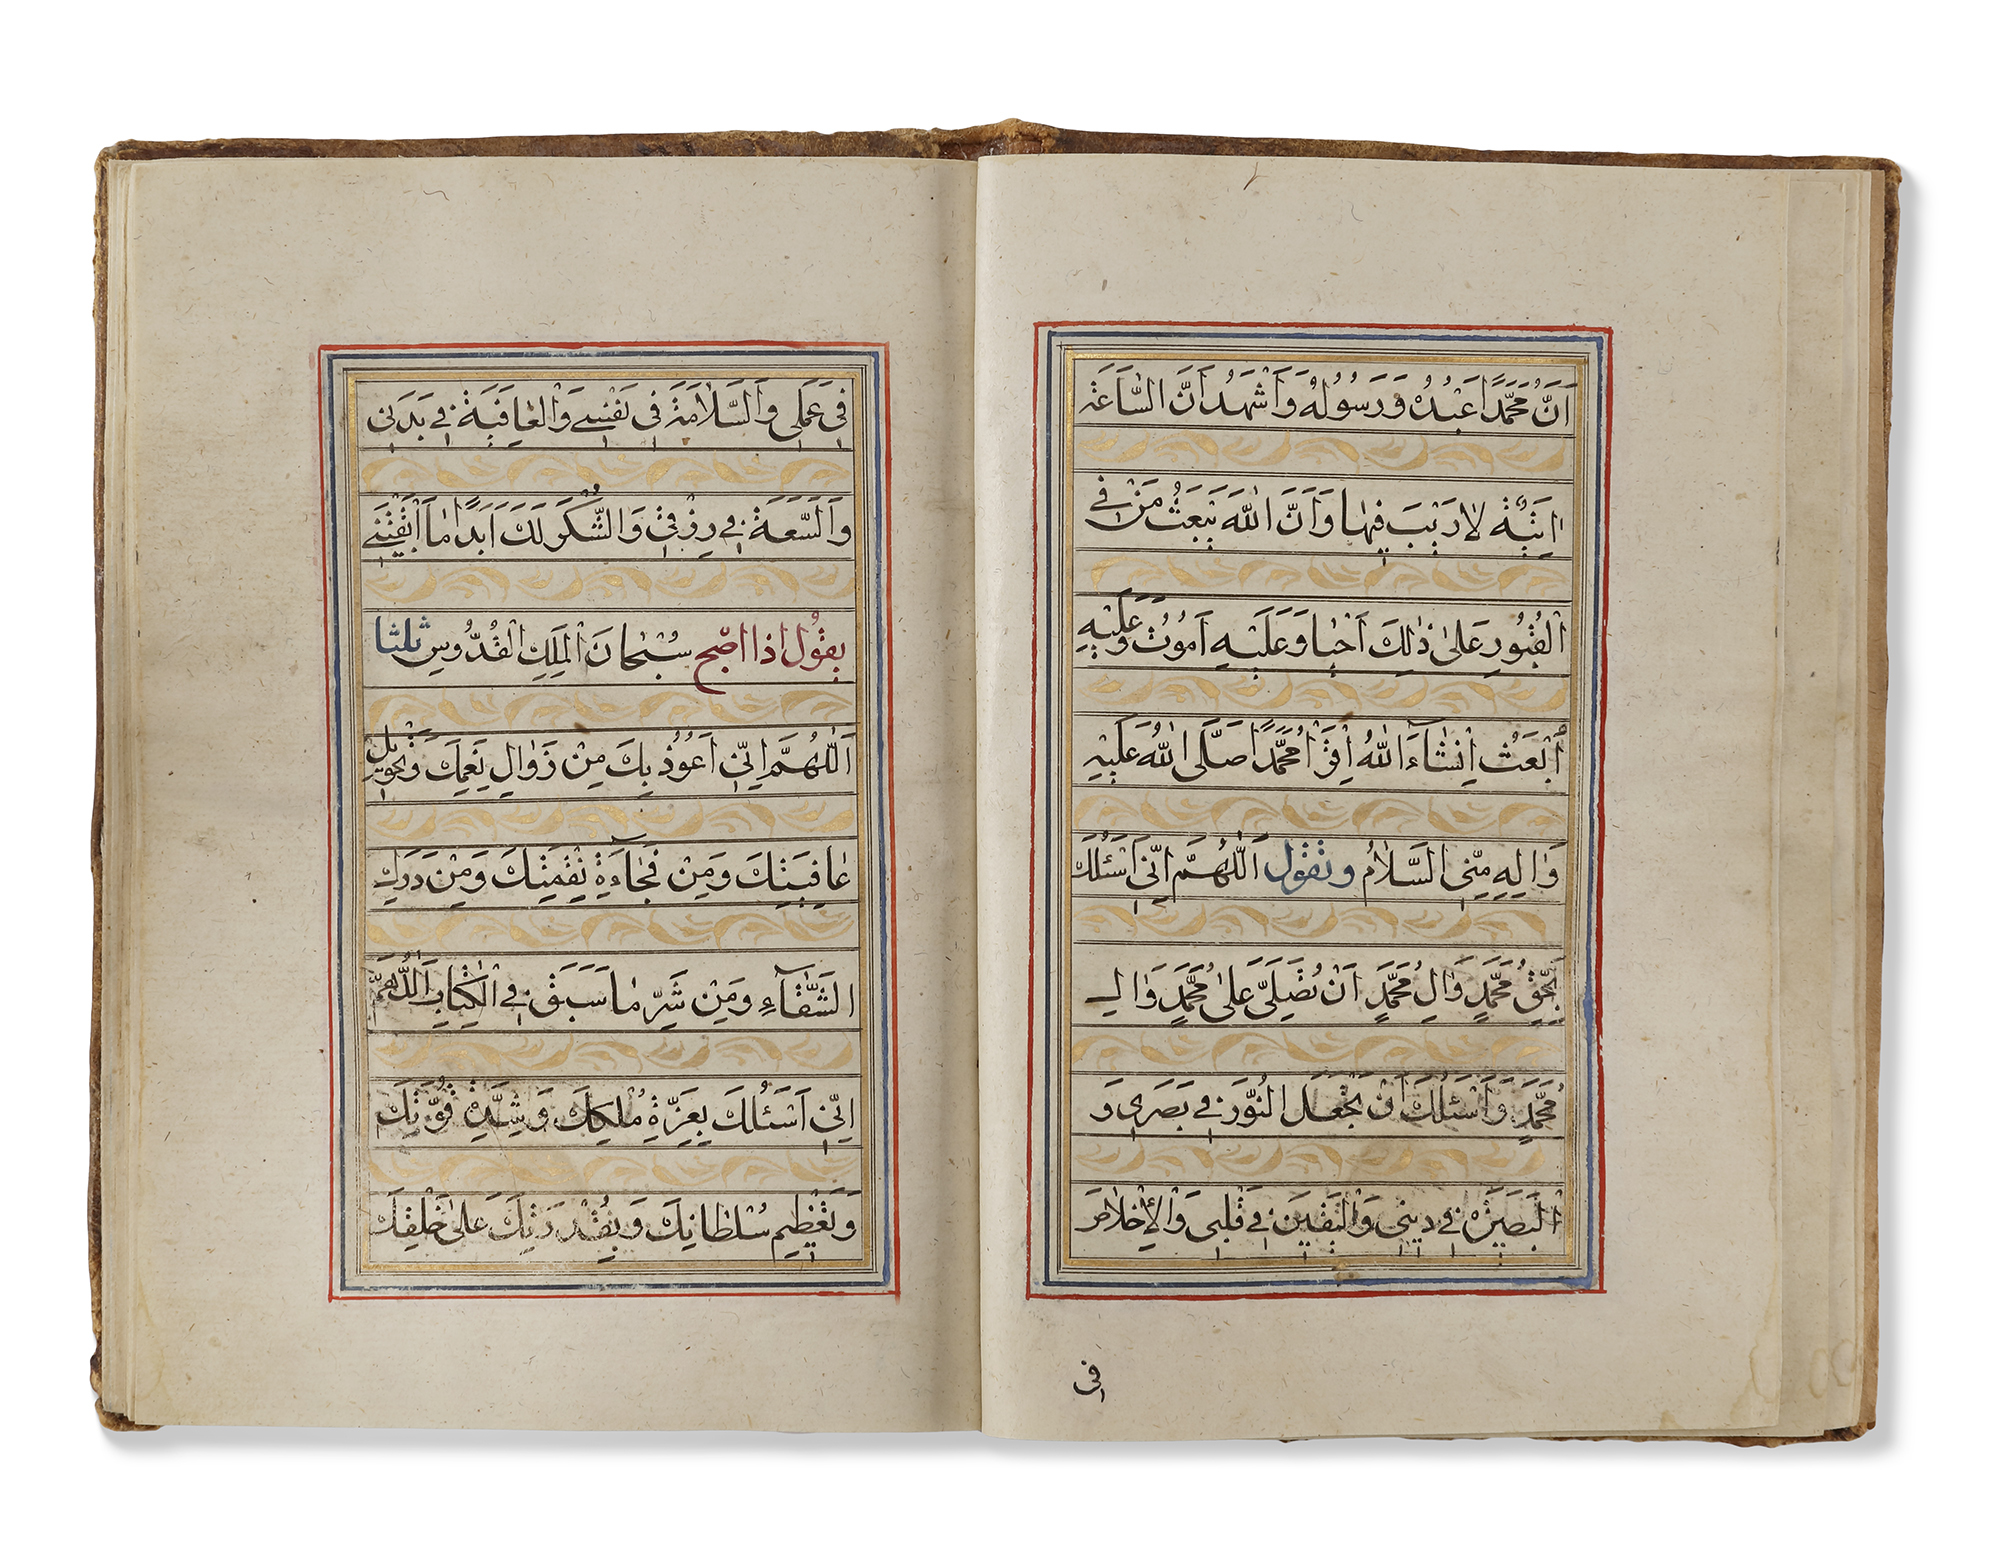 اَنَّ مُحَمَّدًا عَبْدُهُ وَرَسُولُهُ وَاَشْهَدُ اَنَّ السَّاعَةَ
اتِيَةٌ لاٰ رَيْبَ فيهٰا وَاَنَّ اللّٰهَ يَبْعَثُ مَنْ فِي
الْقُبُورِ عَلىٰ ذٰلِكَ اَحْيٰا وَعَلَيْهِ اَمُوتُ وَعَلَيْهِ
اُبْعَثُ اِنْشٰاءَ اللّٰهُ اِقْرَأ مُحَمَّدًا صَلَّى اللّٰهُ عَلَيْهِ
وَاٰلِهِ مِنِّي السَّلاٰمُ وتقول اَللّٰهُمَّ اِنّي اَسْئَلُكَ
بِحَقِّ مُحَمَّدٍ وَاٰلِ مُحَمَّدٍ اَنْ تُصَلِّيَ عَلىٰ مُحَمَّدٍ وَاٰلِ
مُحَمَّدٍ وَاَسْئَلُكَ اَنْ تَجْعَلَ النُّورَ في بَصَري وَ
الْبَصيرَةَ في ديني وَالْيَقينَ في قَلْبي وَالْاِخْلاٰصَ
في
في عَمَلي وَالسَّلاٰمَةَ في نَفْسي وَالْعٰافِيَةَ في بَدَني
وَالسَّعَةَ في رِزْقي وَالشُّكْرَ لَكَ اَبَدًا مٰا اَبْقَيْتَني
يقول اذا اصبح سُبْحٰانَ الْمَلِكِ الْقُدُّوسِ ثلثا
اَللّٰهُمَّ اِنّي اَعُوذُ بِكَ مِنْ زَوٰالِ نِعَمِكَ وَتَحْويلِ
عٰافِيَتِكَ وَمِنْ فَجْاٰءَةِ نِقْمَتِكَ وَمِنْ دَرَكِ
الشَّقٰاءِ وَمِنْ شَرِّ مٰا سَبَقَ فِي الْكِتٰابِ اَللّٰهُمَّ
اِنّي اَسْئَلُكَ بِعِزَّةِ مُلْكِكَ وَشِدَّةِ قُوَّتِكَ
وَبِعَظيمِ سُلْطٰانِكَ وَبِقُدْرَتِكَ عَلىٰ خَلْقِكَ